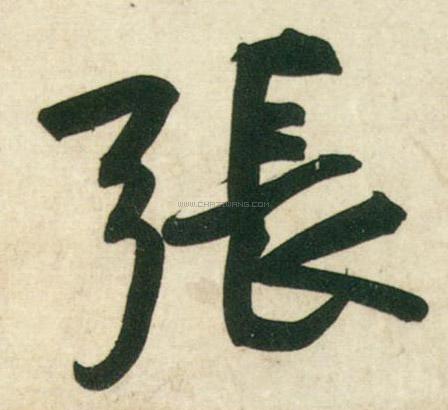 張
WWW.CHAZIWANG.COM